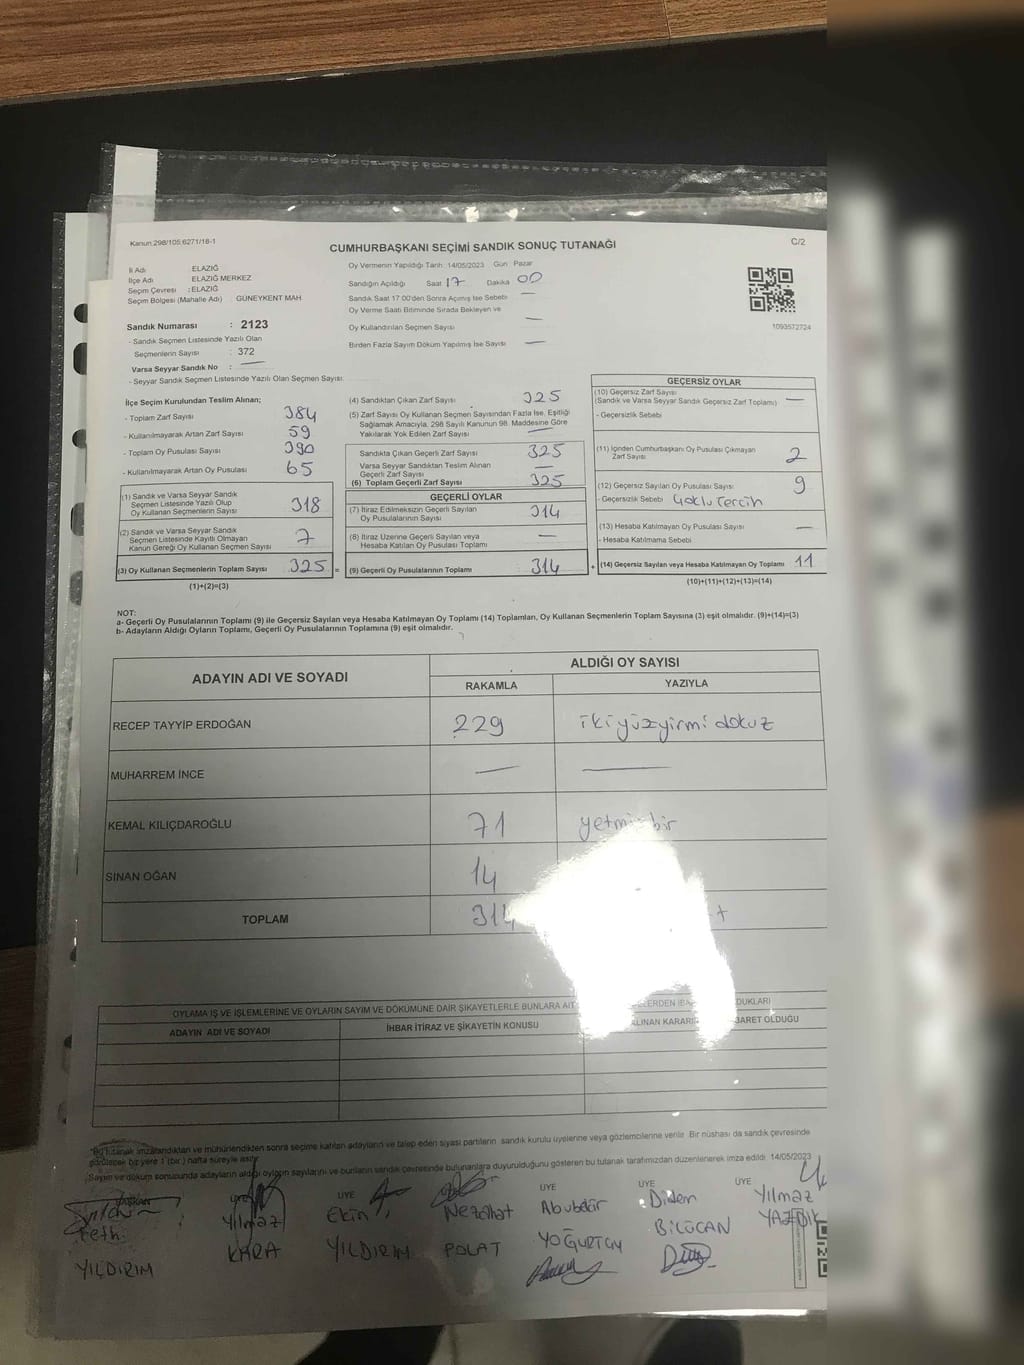 Kanun 298/105,6271/16-1
CUMHURBAŞKANI SEÇİMİ SANDIK SONUÇ TUTANAĞI
C/2
İl Adı ELAZIĞ
İlçe Adı ELAZIĞ MERKEZ
Seçim Çevresi : ELAZIĞ
Seçim Bölgesi (Mahalle Adı) : GÜNEYKENT MAH.
Oy Vermenin Yapıldığı Tarih: 14/05/2023 Gün: Pazar
Sandığın Açıldığı Saat 17 Dakika 00
Sandık Saat 17:00'den Sonra Açılmış İse Sebebi —
Oy Verme Saati Bitiminde Sırada Bekleyen ve
Oy Kullandırılan Seçmen Sayısı —
Birden Fazla Sayım Döküm Yapılmış İse Sayısı —
1093572724
Sandık Numarası : 2123
- Sandık Seçmen Listesinde Yazılı Olan
Seçmenlerin Sayısı : 372
Varsa Seyyar Sandık No : —
- Seyyar Sandık Seçmen Listesinde Yazılı Olan Seçmen Sayısı:
İlçe Seçim Kurulundan Teslim Alınan;
- Toplam Zarf Sayısı 384
- Kullanılmayarak Artan Zarf Sayısı 59
- Toplam Oy Pusulası Sayısı 390
- Kullanılmayarak Artan Oy Pusulası 65
(1) Sandık ve Varsa Seyyar Sandık
Seçmen Listesinde Yazılı Olup
Oy Kullanan Seçmenlerin Sayısı 318
(2) Sandık ve Varsa Seyyar Sandık
Seçmen Listesinde Kayıtlı Olmayan
Kanun Gereği Oy Kullanan Seçmen Sayısı 7
(3) Oy Kullanan Seçmenlerin Toplam Sayısı 325 =
(1)+(2)=(3)
(4) Sandıktan Çıkan Zarf Sayısı 325
(5) Zarf Sayısı Oy Kullanan Seçmen Sayısından Fazla İse, Eşitliği
Sağlamak Amacıyla, 298 Sayılı Kanunun 98. Maddesine Göre
Yakılarak Yok Edilen Zarf Sayısı —
Sandıkta Çıkan Geçerli Zarf Sayısı 325
Varsa Seyyar Sandıktan Teslim Alınan
Geçerli Zarf Sayısı —
(6) Toplam Geçerli Zarf Sayısı 325
GEÇERLİ OYLAR
(7) İtiraz Edilmeksizin Geçerli Sayılan
Oy Pusulalarının Sayısı 314
(8) İtiraz Üzerine Geçerli Sayılan veya
Hesaba Katılan Oy Pusulası Toplamı —
(9) Geçerli Oy Pusulalarının Toplamı 314 +
GEÇERSİZ OYLAR
(10) Geçersiz Zarf Sayısı
(Sandık ve Varsa Seyyar Sandık Geçersiz Zarf Toplamı) —
- Geçersizlik Sebebi
(11) İçinden Cumhurbaşkanı Oy Pusulası Çıkmayan
Zarf Sayısı 2
(12) Geçersiz Sayılan Oy Pusulası Sayısı 9
- Geçersizlik Sebebi Çoklu Tercih
(13) Hesaba Katılmayan Oy Pusulası Sayısı —
- Hesaba Katılmama Sebebi
(14) Geçersiz Sayılan veya Hesaba Katılmayan Oy Toplamı 11
(10)+(11)+(12)+(13)=(14)
NOT:
a- Geçerli Oy Pusulasının Toplamı (9) ile Geçersiz Sayılan veya Hesaba Katılmayan Oy Toplamı (14) Toplamları, Oy Kullanan Seçmenlerin Toplam Sayısına (3) eşit olmalıdır. (9)+(14)=(3)
b- Adayların Aldığı Oyların Toplamı, Geçerli Oy Pusulalarının Toplamına (9) eşit olmalıdır.
ADAYIN ADI VE SOYADI
ALDIĞI OY SAYISI
RAKAMLA YAZIYLA
RECEP TAYYİP ERDOĞAN 229 ikiyüzyirmi dokuz
MUHARREM İNCE — —
KEMAL KILIÇDAROĞLU 71 yetmiş bir
SİNAN OĞAN 14
TOPLAM 314
OYLAMA İŞ VE İŞLEMLERİNE VE OYLARIN SAYIM VE DÖKÜMÜNE DAİR ŞİKAYETLERLE BUNLARA AİT
ADAYIN ADI VE SOYADI İHBAR İTİRAZ VE ŞİKAYETİN KONUSU ALINAN KARARI OLDUĞU
Bu tutanak imzalandıktan ve mühürlendikten sonra seçime katılan adayların ve talep eden siyasi partilerin sandık kurulu üyelerine veya gözlemcilerine verilir. Bir nüshası da sandık çevresinde
görülecek bir yere 1 (bir) hafta süreyle asılır.
Sayım ve döküm sonucunda adayların aldığı oyların sayılarını ve bunların sandık çevresinde bulunanlara duyurulduğunu gösteren bu tutanak tarafımızdan düzenlenerek imza edildi. 14/05/2023
BAŞKAN ÜYE ÜYE ÜYE ÜYE ÜYE
Fethi Yılmaz Ekin Nezahat Abubekir Didem Yılmaz
YILDIRIM KARA YILDIRIM POLAT YOĞURTÇU BİLGCAN